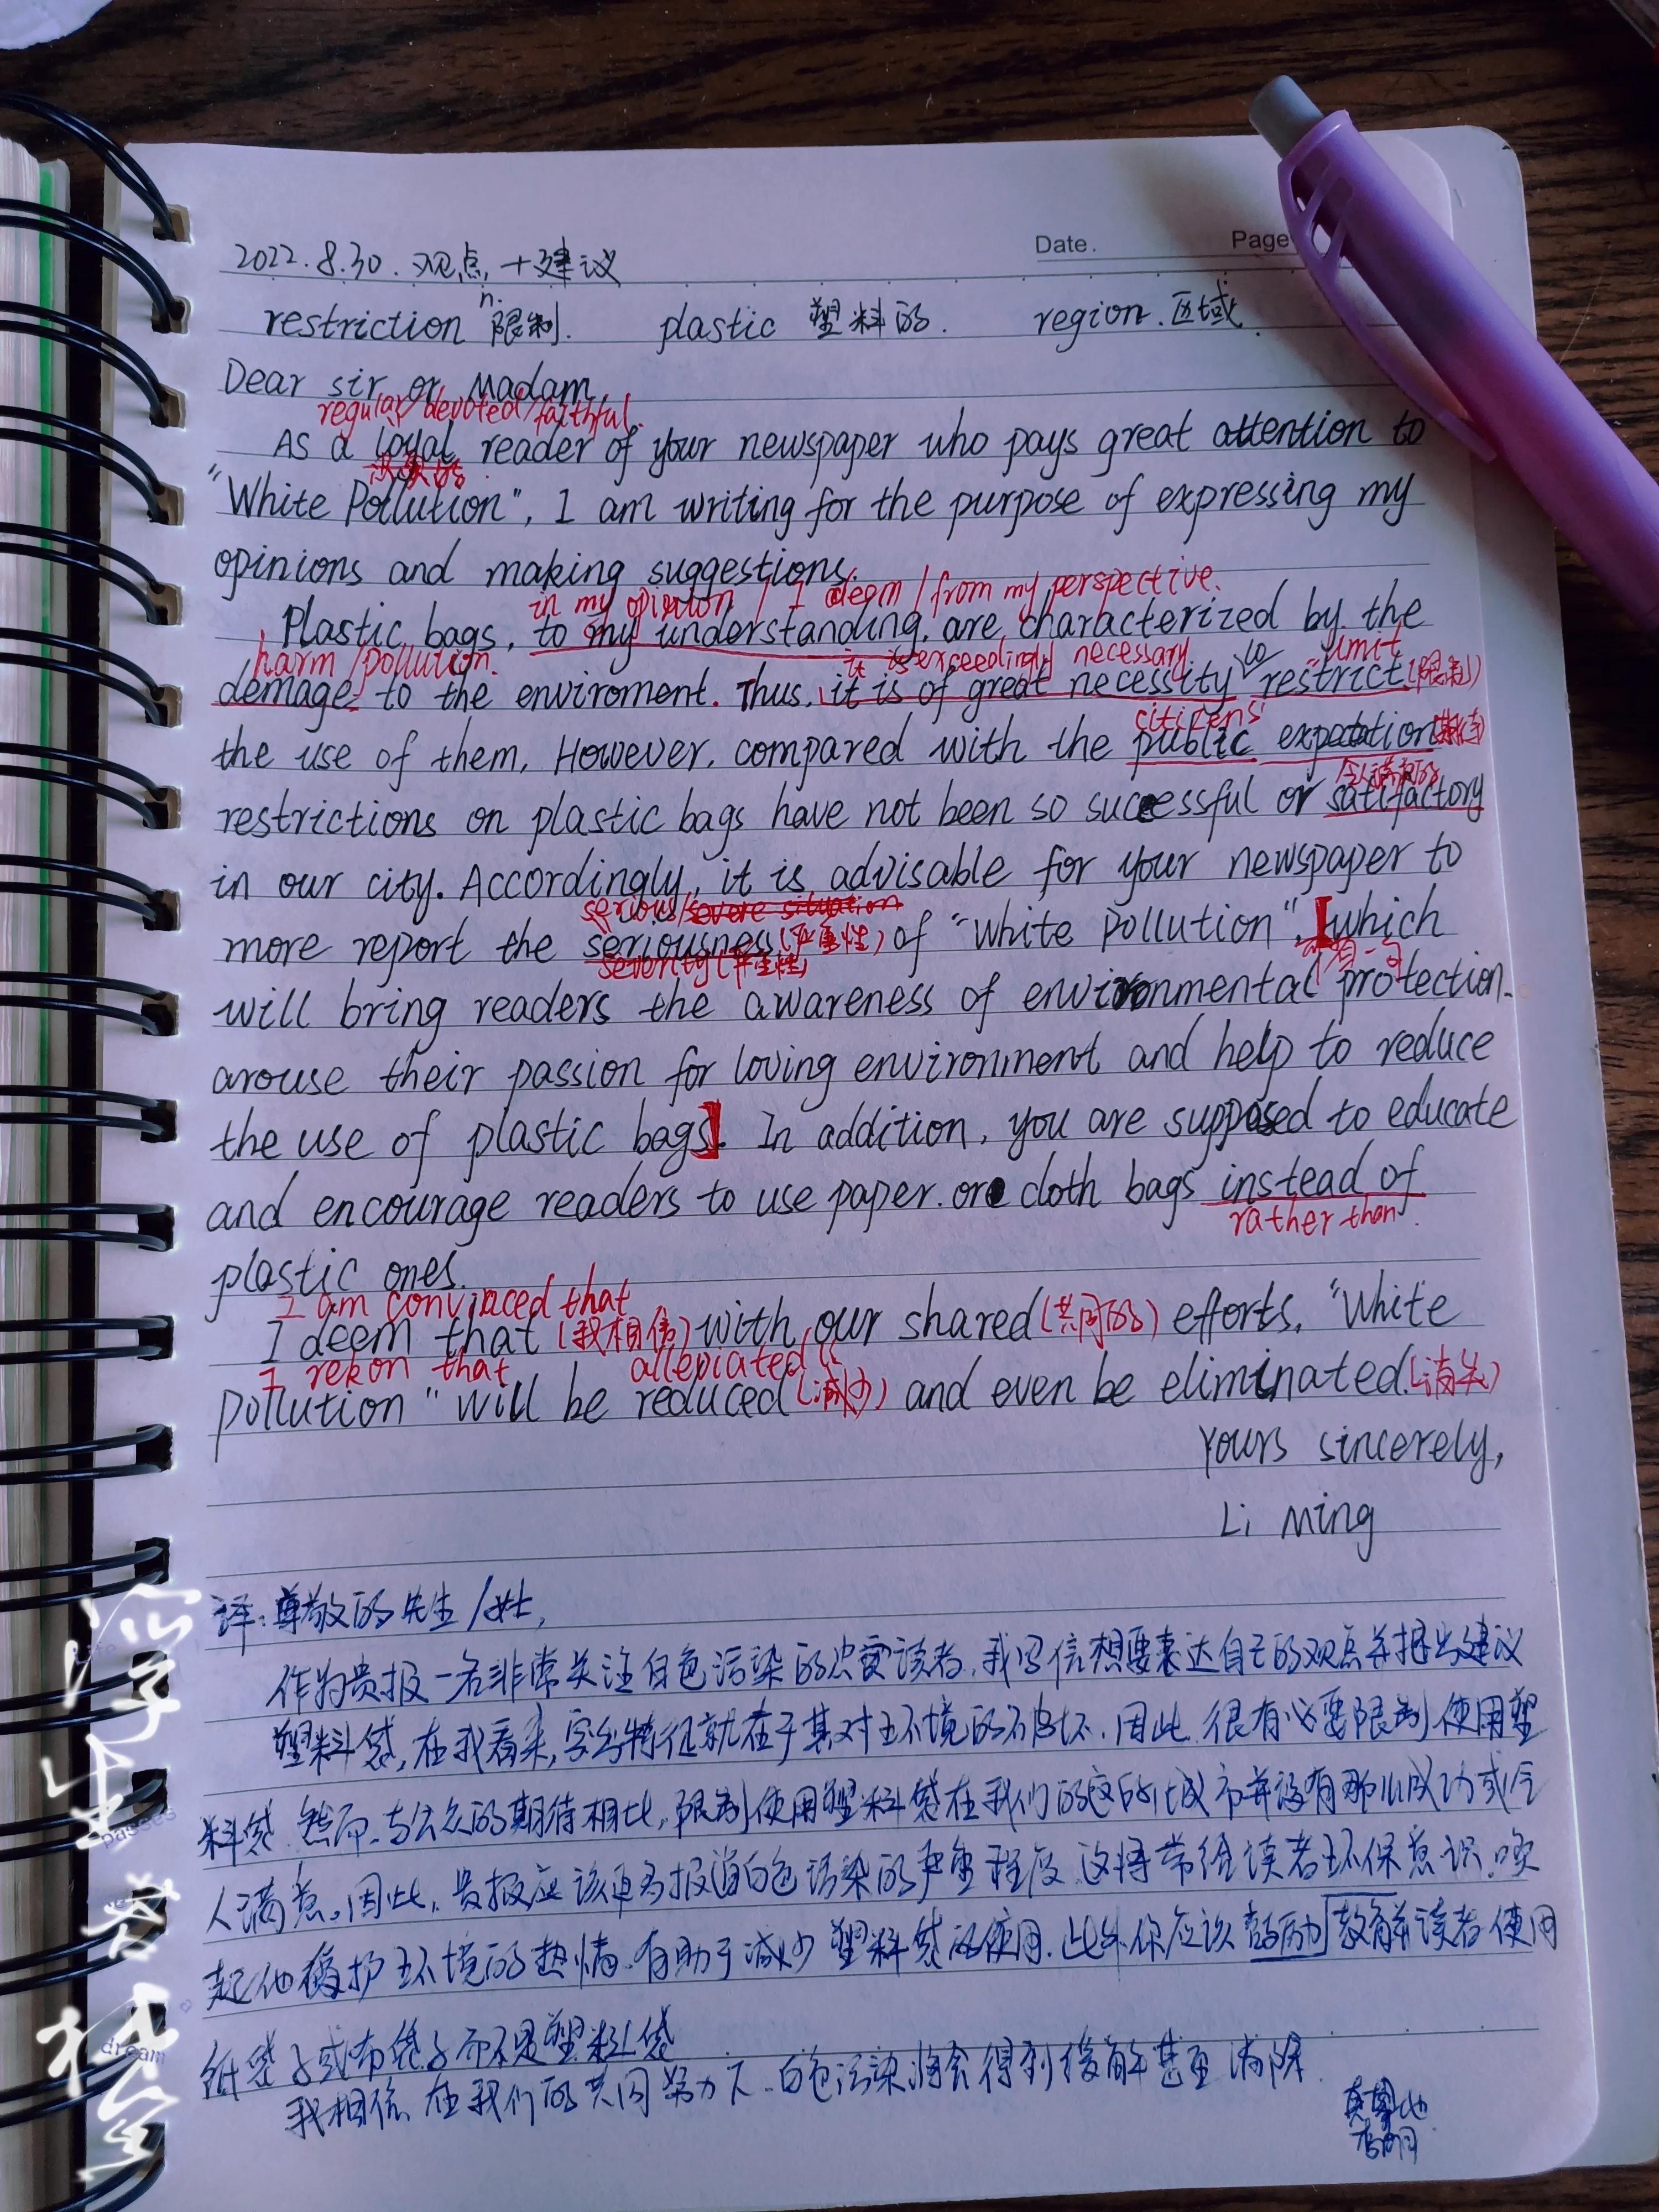 Date.
Page
2022.8.30. 观点+建议
restriction n.限制. plastic 塑料的. region.区域.
Dear sir or Madam,
regular/devoted/faithful.
As a loyal reader of your newspaper who pays great attention to
"White Pollution", I am writing for the purpose of expressing my
opinions and making suggestions.
in my opinion / I deem / from my perspective.
Plastic bags, to my understanding, are characterized by the
harm/pollution. it is exceedingly necessary to limit
demage to the enviroment. Thus, it is of great necessity restrict (限制)
citizens'
the use of them, However, compared with the public expectation(期待)
令人满意的
restrictions on plastic bags have not been so successful or satifactory
in our city. Accordingly, it is advisable for your newspaper to
serious/severe situation
more report the seriousness(严重性) of "White Pollution", [which
severity(严重性)
will bring readers the awareness of environmental protection.
arouse their passion for loving environment and help to reduce
the use of plastic bags]. In addition, you are supposed to educate
and encourage readers to use paper. or cloth bags instead of
rather than.
plastic ones.
I am convinced that
I deem that (我相信) with our shared(共同的) efforts, "White
I rekon that alleviated
Pollution" will be reduced(减少) and even be eliminated.(消失)
Yours sincerely,
Li Ming
译:尊敬的先生/女士,
作为贵报一名非常关注白色污染的忠实读者,我写信想要表达自己的观点并提出建议
塑料袋,在我看来,突出特征就在于其对环境的破坏.因此.很有必要限制使用塑
料袋.然而.与公众的期待相比,限制使用塑料袋在我们的城市并没有那么成功或令
人满意。因此,贵报应该更多报道白色污染的严重程度.这将带给读者环保意识.唤
起他爱护环境的热情.有助于减少塑料袋的使用.此外你应该鼓励教育读者使用
纸袋子或布袋子而不是塑料袋
我相信在我们的共同努力下.白色污染将会得到缓解甚至消除.
学生若城
passes
dream